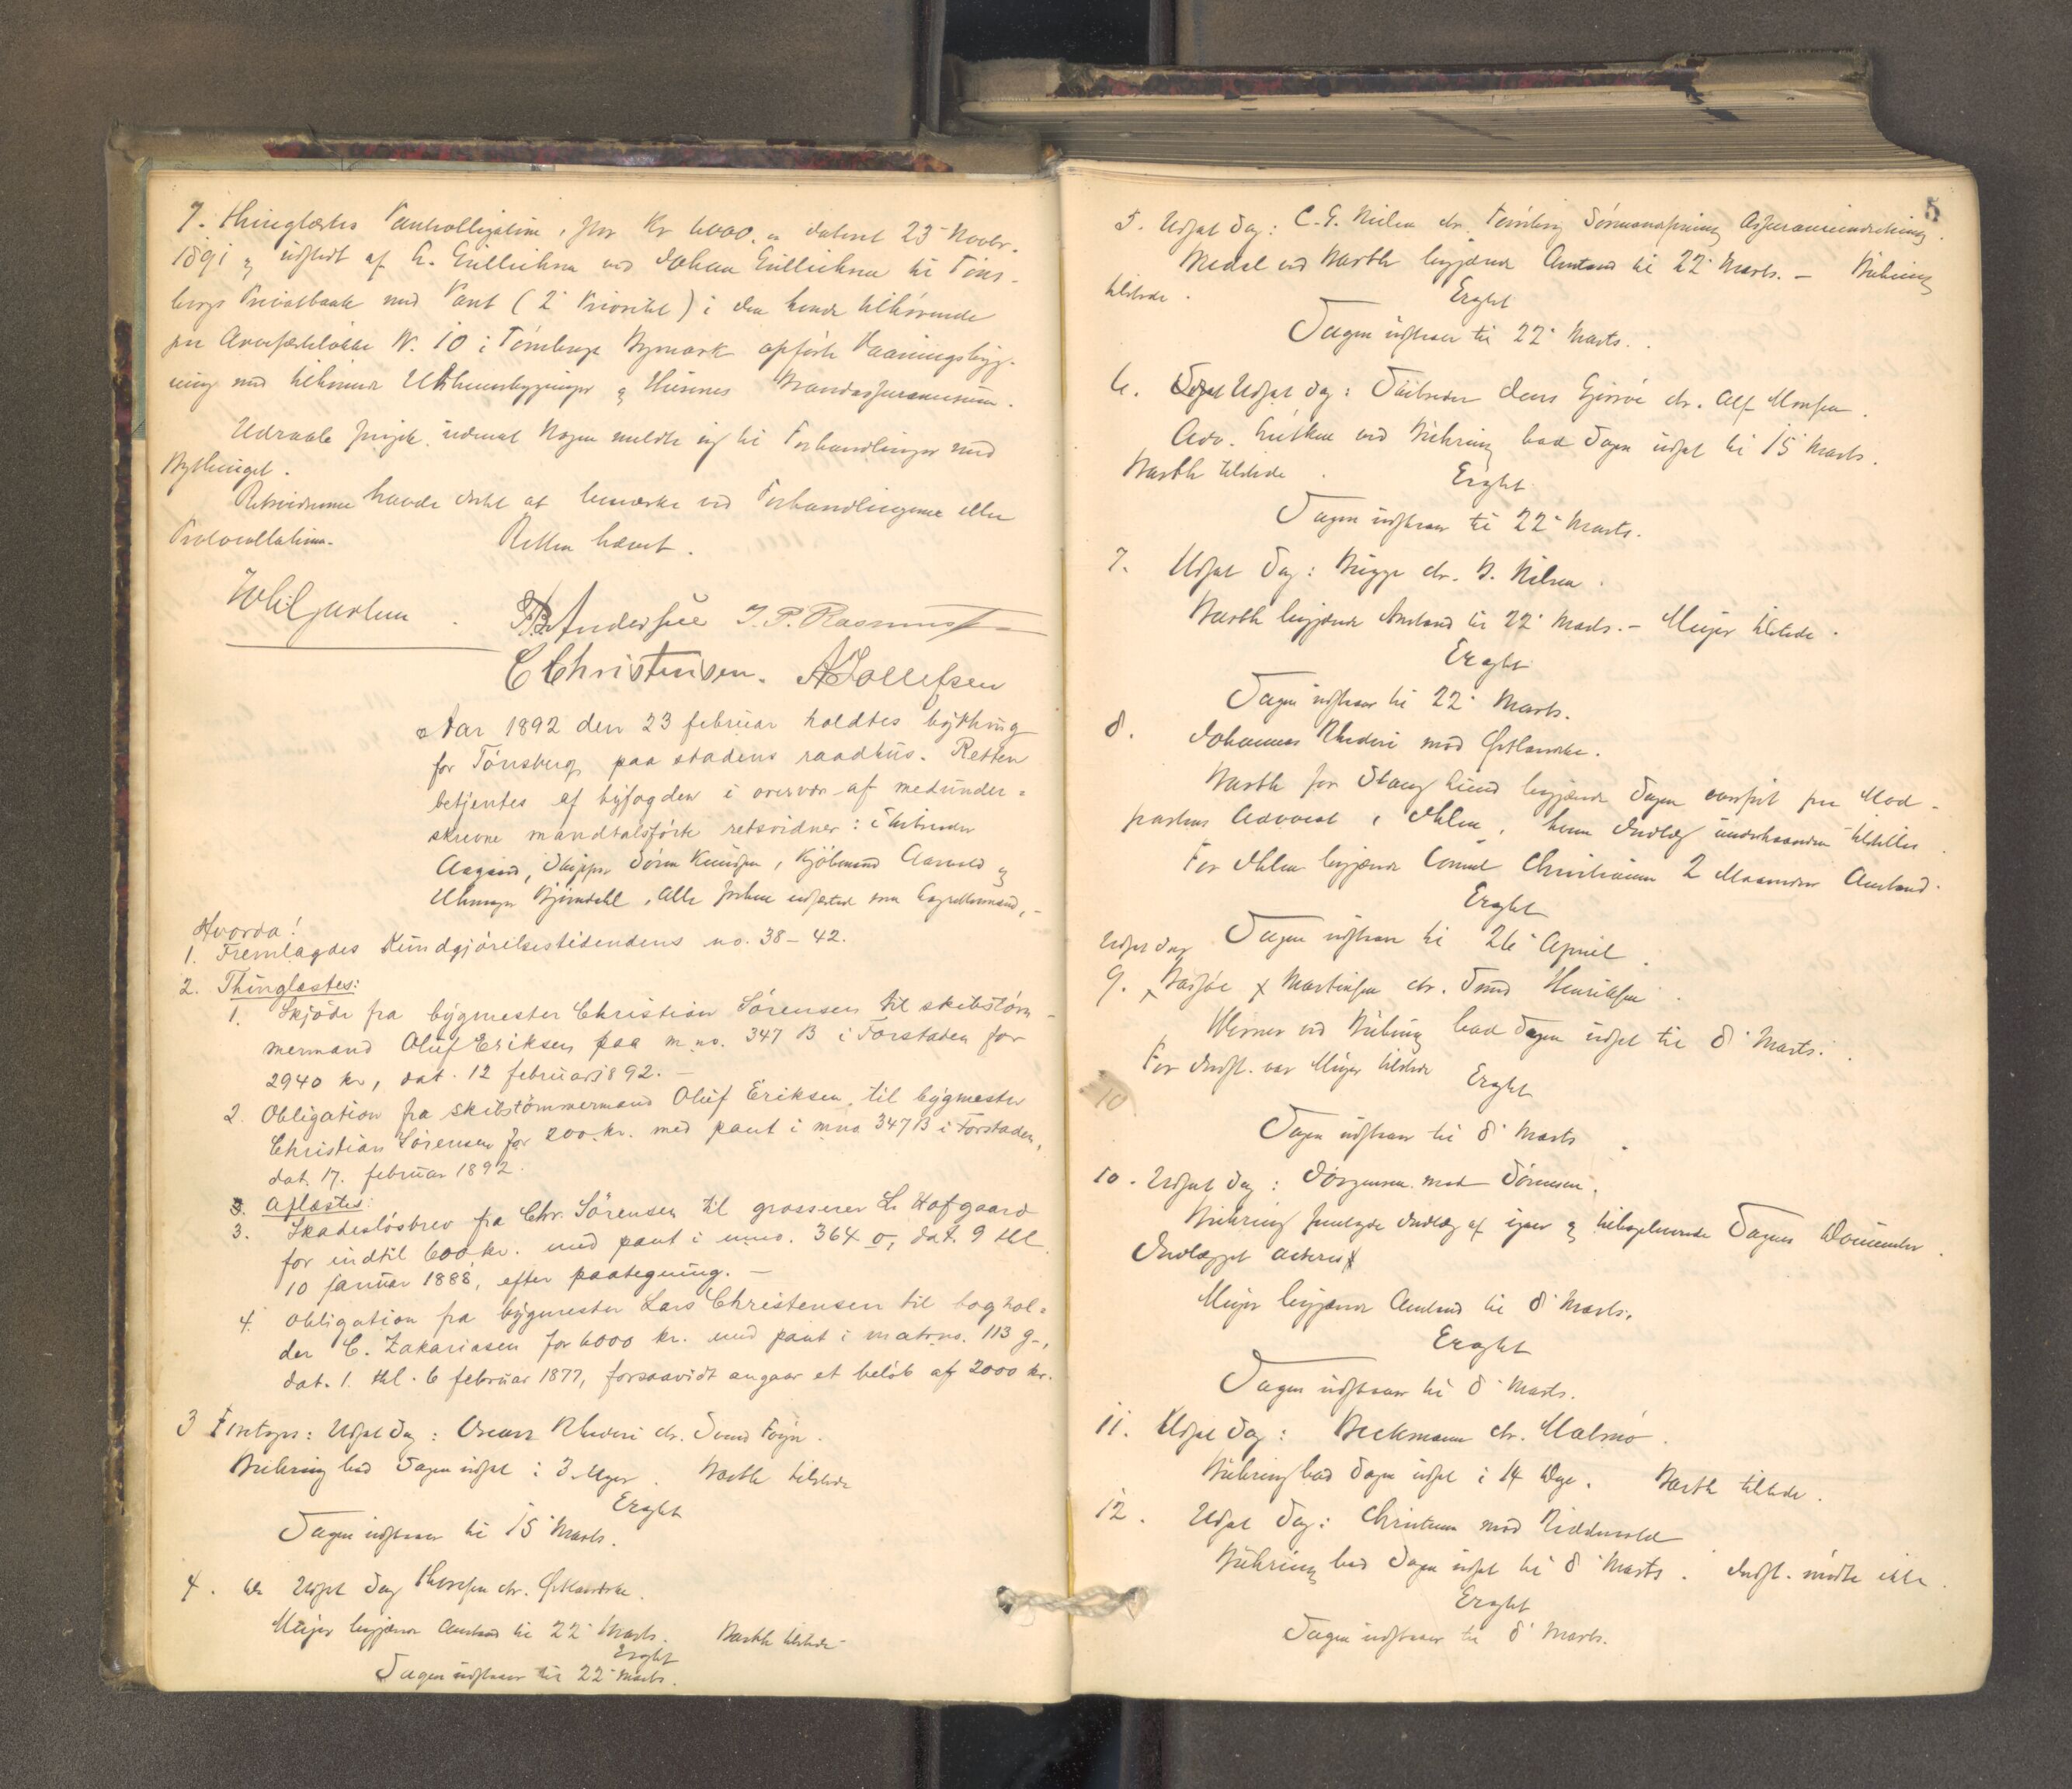 7. Thinglæstes Pantobligation, stor Kr 6000.00 dateret 23 Novbr.
1891 og udstedt af h. Gullichsen ved Johan Gullichsen til Tøns-
bergs Privatbank med Pant (2 Prioritet) i den hende tilhørende
paa Arvefæsteløkke N. 10 i Tønsbergs Bymark opførte Vaaningsbyg-
ning med tilhørende Udhusbygninger og Husenes Brandassurancesum.
Udraab skede, uden at Nogen meldte sig til Forhandlinger ved
Bythinget.
Retsvidnerne havde Intet at bemærke ved Forhandlingerne eller
Protocollationen.
Retten hævet.
T.B. Anderssen J. P. Rasmussen
C Christensen. A Tollefsen
Aar 1892 den 23 februar holdtes bything
for Tönsberg paa stadens raadhus. Retten
betjentes af byfogden i overvær af medunder-
skrevne mandtalsførte retsvidner: Skibsreder
Aagaard, Skipper Søren Knudsen, Kjöbmand Aarvold og
Uhrmager Bjerndahl, Alle forhen edfæstede som Lagrettesmænd,-
Hvorda!
1. Fremlagdes Kundgjörelsestidendens no. 38-42.
2. Thinglæstes:
1. Skjöde fra bygmester Christian Sörensen til skibstöm-
mermand Oluf Eriksen paa m.no. 347 B i Forstaden for
2940 kr, dat. 12 februar 1892. -
2. Obligation fra skibstömmermand Oluf Eriksen til bygmester
Christian Sörensen for 200 kr. med pant i mno 347 B i Forstaden,
dat. 17. februar 1892.
3. Aflæstes:
3. Skadeslösbrev fra Chr. Sörensen til grosserer L. Hofgaard
for indtil 600 kr. med pant i m.no. 364 o, dat. 9 thl
10 januar 1888, efter paategning. -
4. Obligation fra bygmester Lars Christensen til boghol-
der C. Zakariasen for 6000 kr. med pant i matr.no. 113 g-,
dat. 1. thl. 6 februar 1877, forsaavidt angaar et belöb af 2000 kr.
3 Foretoges: Udsat Sag: Oscars Rhederi ctr. Svend Foyn.
Bühring bad Sagen udsat i 3 Uger. Barth tilstede
Eragtet
Sagen udstaar til 15 Marts.
4. Udsat Sag Thoresen ctr. Østlandske.
Meijer begjærede Anstand til 22 Marts. Barth tilstede
Eragtet
Sagen udstaar til 22 Marts.
5
5. Udsat Sag: C. G. Nielsen ctr. Tønsberg Sømandsforenings Assuranceindretning.
Wedel ved Barth begjærede Anstand til 22 Marts. - Bühring
tilstede.
Eragtet
Sagen udstaar til 22 Marts.
6. Udsat Sag: Skibsreder Jens Gjersøe ctr. Alf Monsen.
Adv. ved Bühring bad Sagen udsat til 15 Marts.
Barth tilstede.
Eragtet
Sagen udstaar til 22 Marts.
7. Udsat Sag: Bugge ctr. B. Nilsen.
Barth begjærede Anstand til 22 Marts. - Meijer tilstede.
Eragtet
Sagen udstaar til 22 Marts.
8. Johannes Rhederi mod Østlandske.
Barth for Stang Lund begjærede Sagen udsat paa Mod-
partens Advocat, Ihlen, hvem Indlæg underhaanden tilstilles.
For Ihlen begjærede Consul Christiansen 2 Maaneders Anstand.
Eragtet
Sagen udstaar til 26 April.
Udsat Sag
9. Basjöe & Martinsen ctr. Svend Henriksen.
Werner ved Bühring bad Sagen udsat til 8 Marts.
For Indst. var Meijer tilstede
Eragtet
10
Sagen udstaar til 8 Marts.
10. Udsat Sag: Jörgensen mod Sörensen.
Bühring fremlagde Indlæg af igaar og tilbageleverede Sagens Documenter.
Indlægget acteres
Meijer begjærede Anstand til 8 Marts.
Eragtet
Sagen udstaar til 8 Marts.
11. Udsat Sag: Beckmann ctr. Malmö.
Bühring bad Sagen udsat i 14 Dage. Barth tilstede.
12. Udsat Sag: Christensen mod Riddervold
Bühring bad Sagen udsat til 8 Marts. Indst. mödte ikke.
Eragtet
Sagen udstaar til 8 Marts.